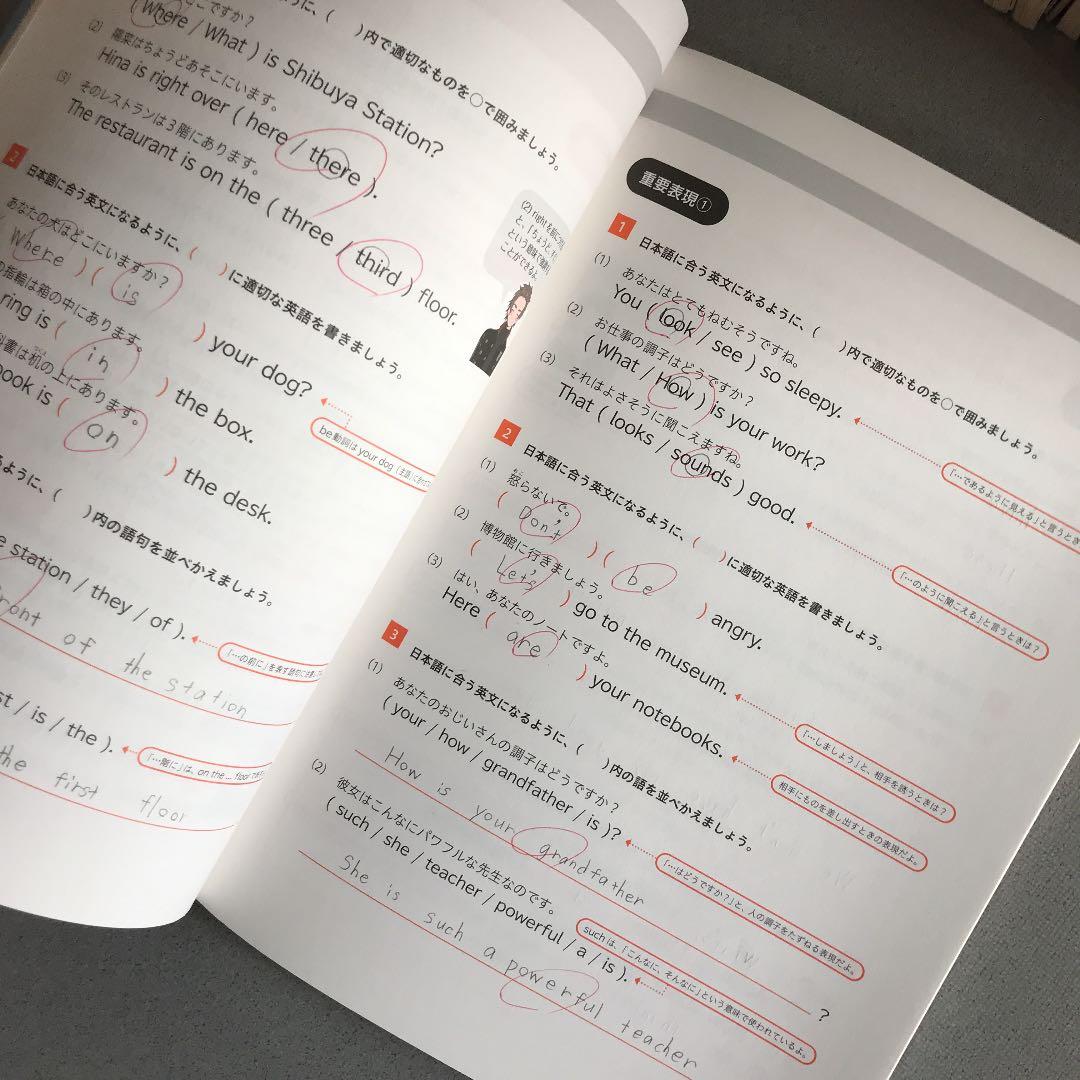 ように、(　　)内で適切なものを○で囲みましょう。
こですか？
( Where / What ) is Shibuya Station?
(2) 陽菜はちょうどあそこにいます。
Hina is right over ( here / there ).
(3) そのレストランは3階にあります。
The restaurant is on the ( three / third ) floor.
(2) rightを前に
と、「ちょうど、
という意味で強調
ことができるよ
2 日本語に合う英文になるように、(　　)に適切な英語を書きましょう。
あなたの犬はどこにいますか？
Where )( is ) your dog?
be動詞は your dog（主語）に
の指輪は箱の中にあります。
ring is ( in ) the box.
書は机の上にあります。
book is ( on ) the desk.
るように、(　　)内の語句を並べかえましょう。
station / they / of ).
「…の前に」を表す語句に
front of the station
st / is / the ).
「…階に」は、on the ... floor
the first floor
重要表現①
1 日本語に合う英文になるように、(　　)内で適切なものを○で囲みましょう。
(1) あなたはとてもねむそうですね。
You ( look / see ) so sleepy.
「…であるように見える」と言うとき
(2) お仕事の調子はどうですか？
( What / How ) is your work?
(3) それはよさそうに聞こえますね。
That ( looks / sounds ) good.
「…のように聞こえる」と言うときは？
2 日本語に合う英文になるように、(　　)に適切な英語を書きましょう。
(1) 怒らないで。
( Don't )( be ) angry.
(2) 博物館に行きましょう。
( Let's ) go to the museum.
「…しましょう」と、相手を誘うときは？
(3) はい、あなたのノートですよ。
Here ( are ) your notebooks.
相手にものを差し出すときの表現だよ。
3 日本語に合う英文になるように、(　　)内の語を並べかえましょう。
(1) あなたのおじいさんの調子はどうですか？
( your / how / grandfather / is )?
「…はどうですか？」と、人の調子をたずねる表現だよ。
How is your grandfather ?
(2) 彼女はこんなにパワフルな先生なのです。
( such / she / teacher / powerful / a / is ).
suchは、「こんなに、そんなに」という意味で使われているよ。
She is such a powerful teacher